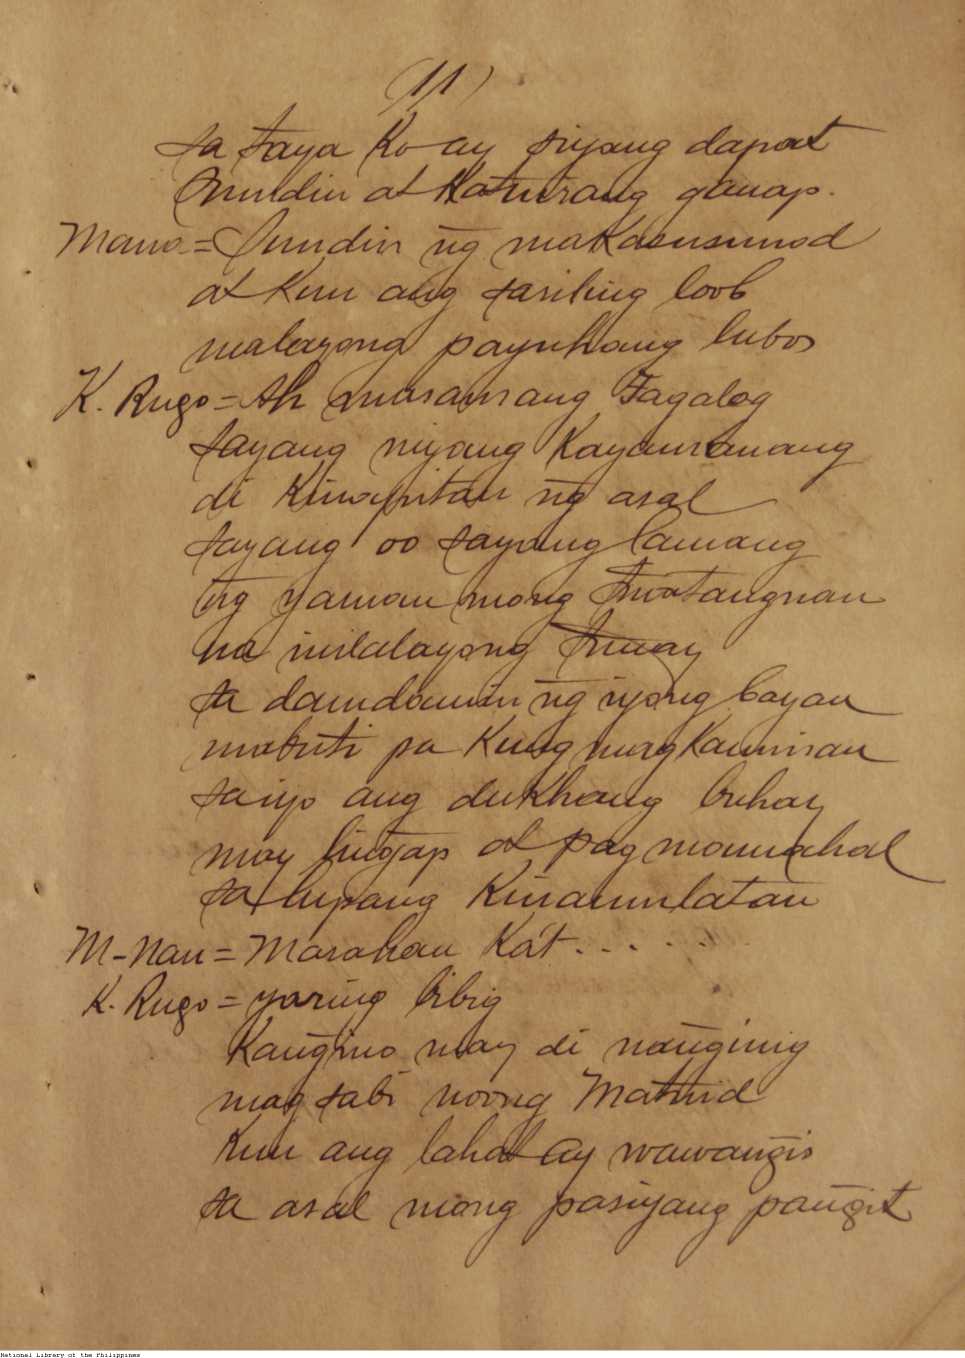 (11)
sa taya ko ay siyang dapat
sundin at katuirang ganap.
Mano.= Sundin ñg makasusunod
at kun ang sariling loob
malayong payuhang lubos
K. Rugo = Ah masamang Tagalog
sayang niyang kayamanang
di kinapitan ñg asal
sayang oo sayang lamang
ñg yaman mong
na inilalayong tunay
sa damdamin ñg iyong bayan
mabuti pa kung magkaminsan
saiyo ang dukhang buhay
may liñgap at pag mamahal
sa lupang kinamulatan
M-Nan = Marahan Ka't . . . . .
K. Rugo = yaring bibig
Kañgino may di nañginig
mag sabi noong Matuid
kun ang lahat ay wawañgis
sa asal mong pasiyang pañgit
National Library of the Philippines